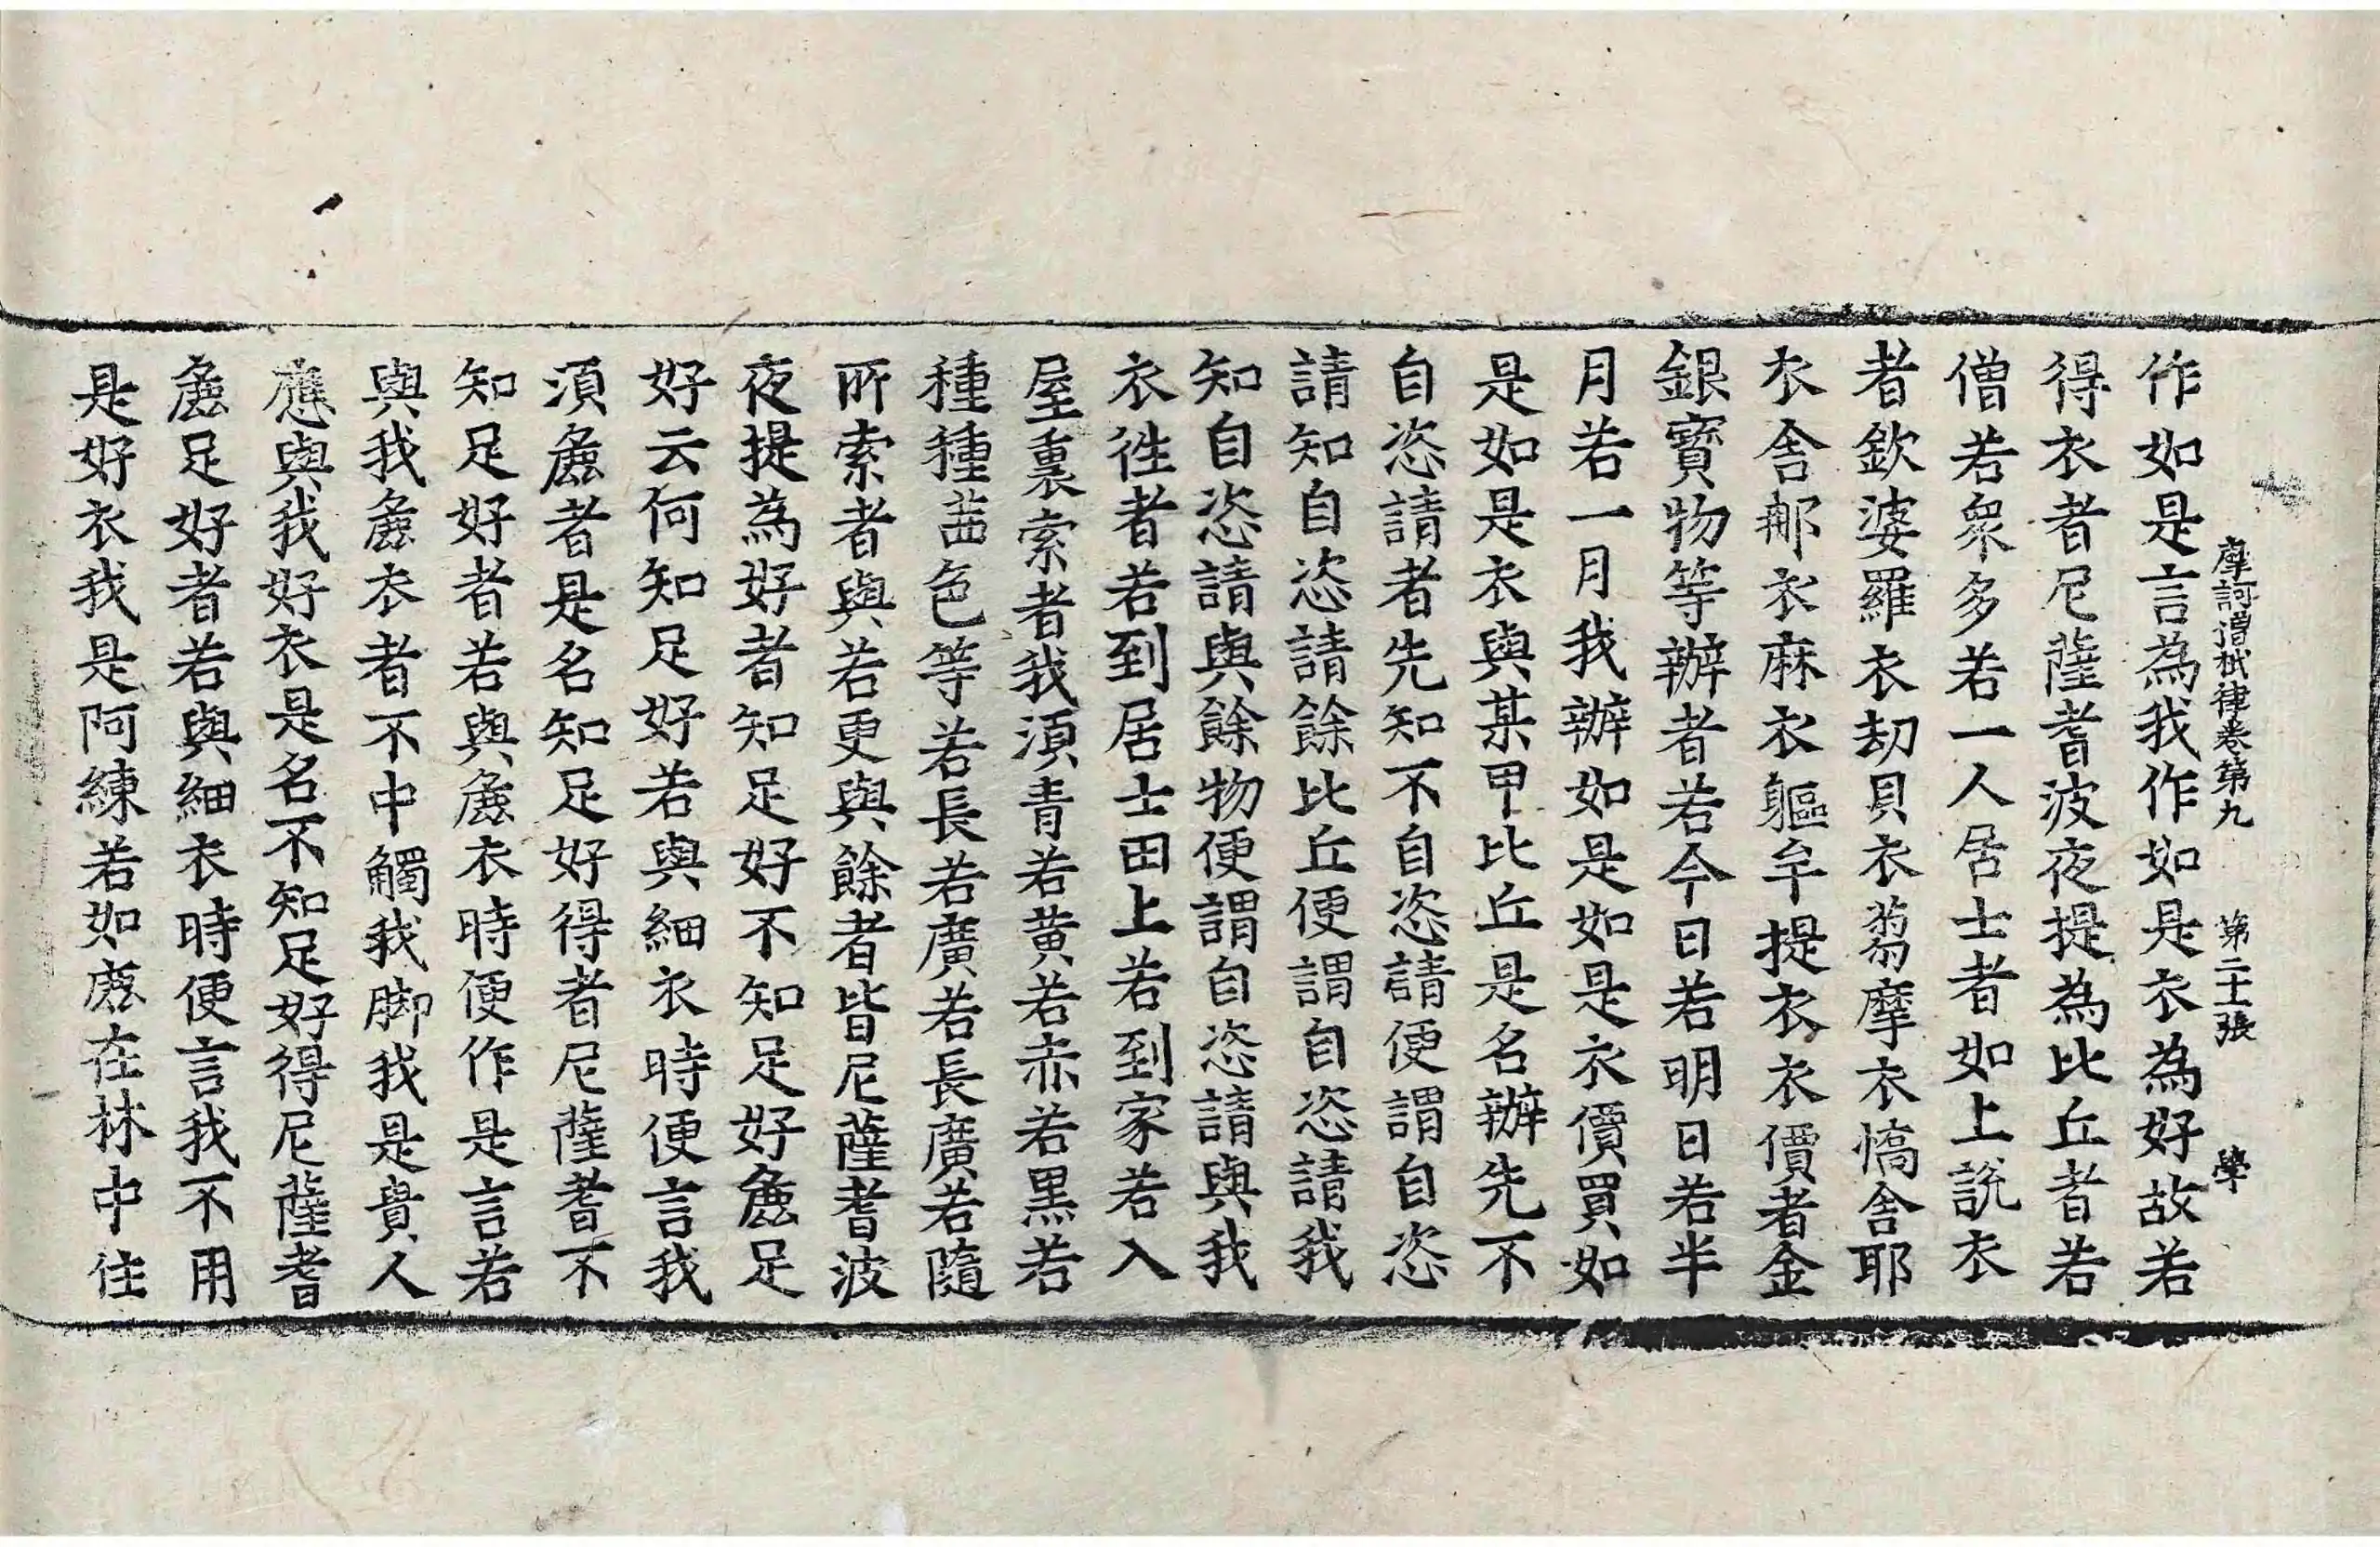 摩訶僧祇律卷第九 第二十張 學
作如是言為我作如是衣為好故若
得衣者尼薩耆波夜提為比丘者若
僧若衆多若一人居士者如上說衣
者欽婆羅衣刧貝衣蒭摩衣憍舍耶
衣舍那衣麻衣軀牟提衣衣價者金
銀寶物等辦者若今日若明日若半
月若一月我辦如是如是衣價買如
是如是衣與某甲比丘是名辦先不
自恣請者先知不自恣請便謂自恣
請知自恣請餘比丘便謂自恣請我
知自恣請與餘物便謂自恣請與我
衣徃者若到居士田上若到家若入
屋裏索者我湏青若黄若赤若黑若
種種茜色等若長若廣若長廣若隨
所索者與若更與餘者皆尼薩耆波
夜提為好者知足好不知足好麁足
好云何知足好若與細衣時便言我
湏麁者是名知足好得者尼薩耆不
知足好者若與麁衣時便作是言若
與我麁衣者不中觸我脚我是貴人
應與我好衣是名不知足好得尼薩耆
麁足好者若與細衣時便言我不用
是好衣我是阿練若如鹿在林中住